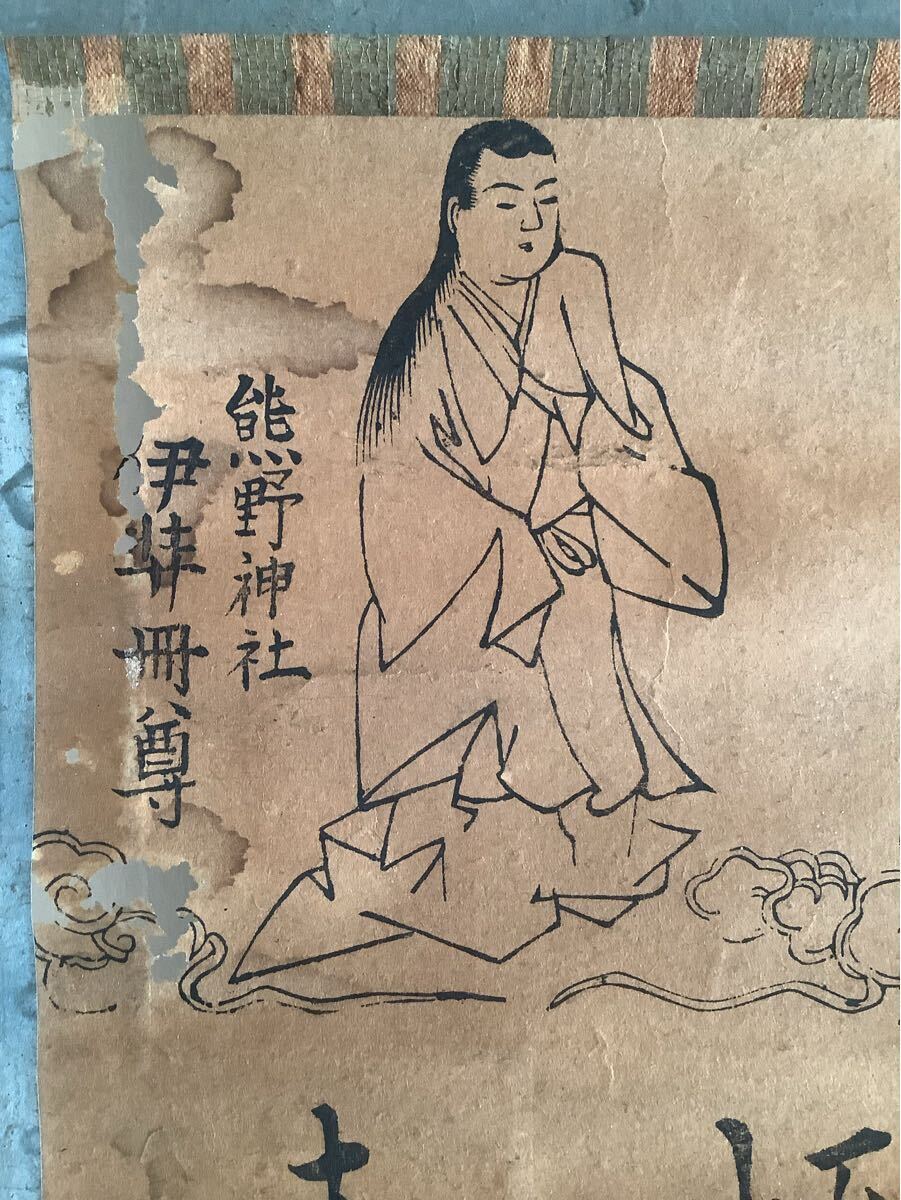 熊野神社
伊弉冊尊